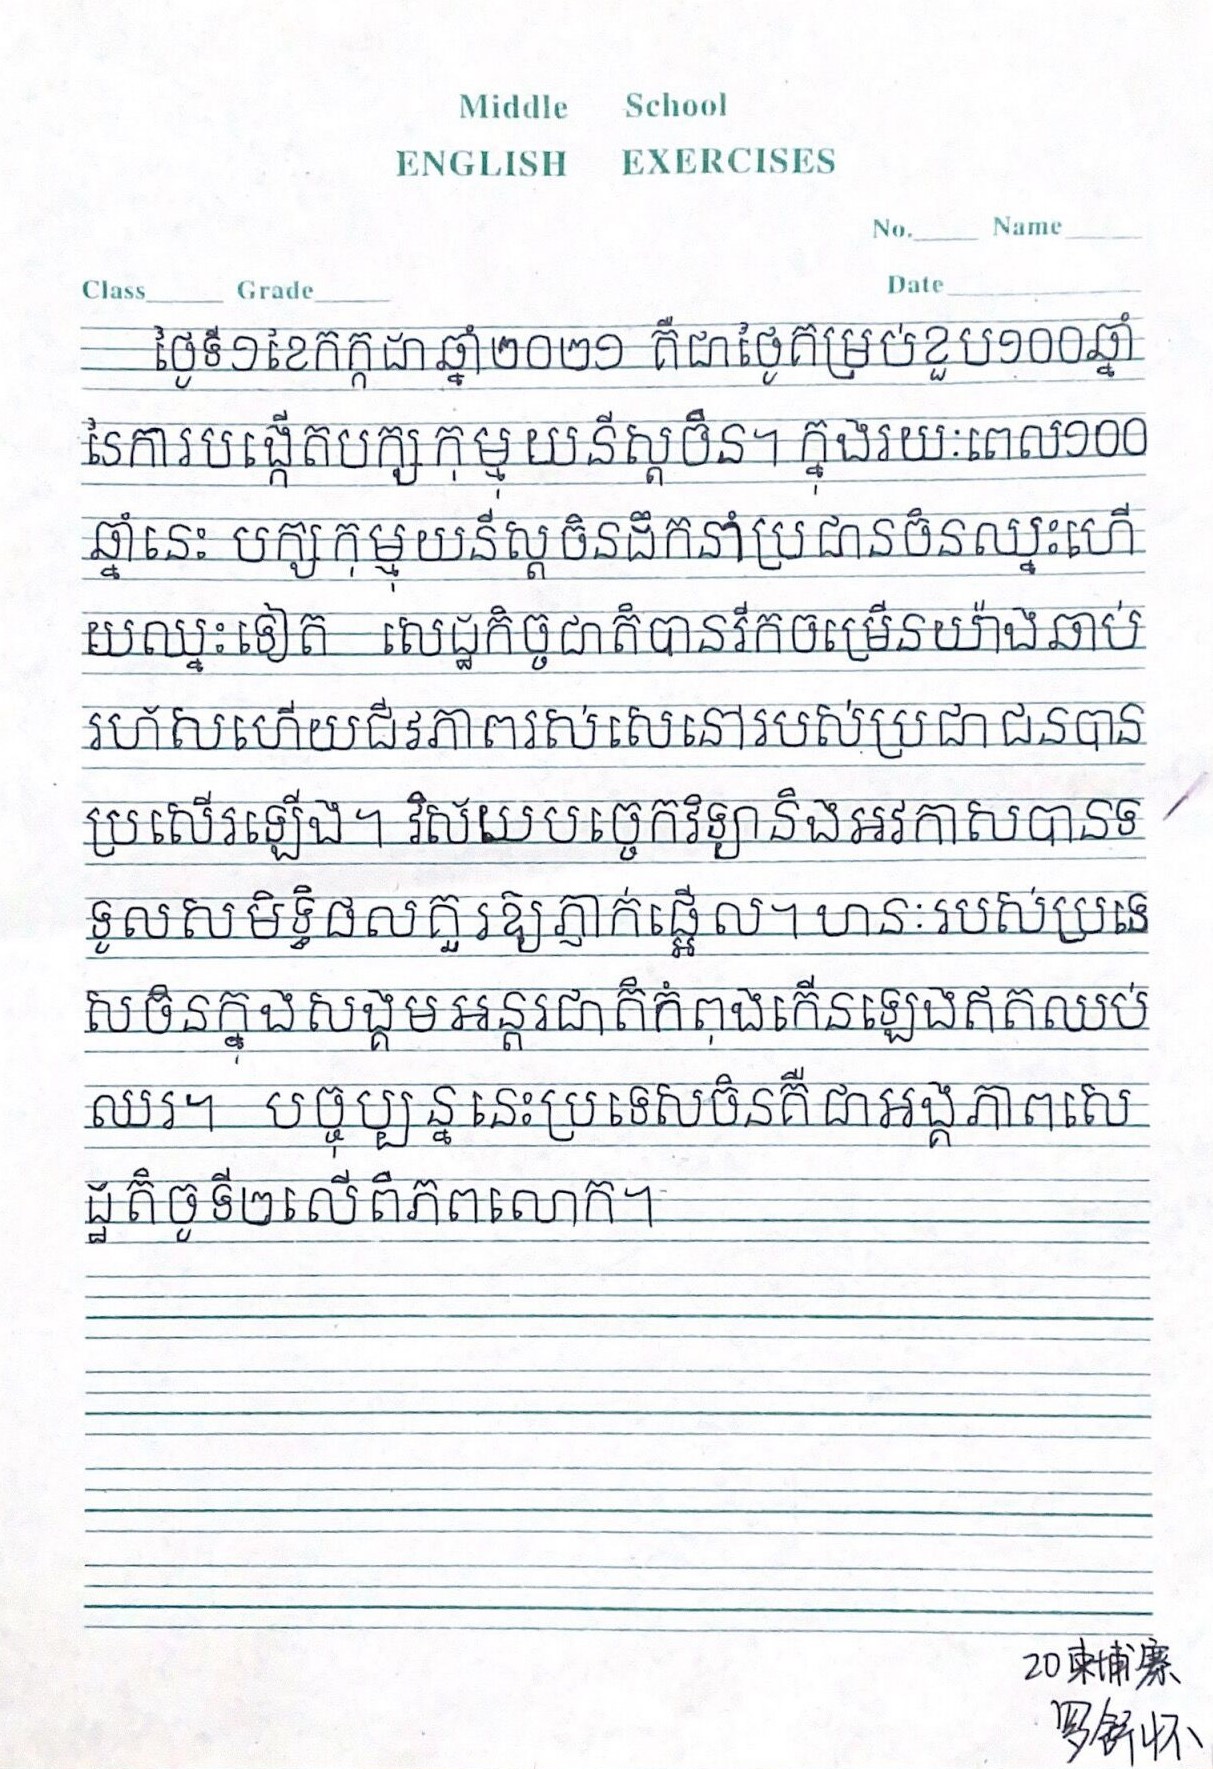 Middle School
ENGLISH EXERCISES
No. Name
Class Grade Date
ថ្ងៃទី១ខែកក្កដាឆ្នាំ២០២១ គឺជាថ្ងៃគម្រប់ខួប១០០ឆ្នាំ
នៃការបង្កើតបក្សកុម្មុយនីស្តចិន។ ក្នុងរយៈពេល១០០
ឆ្នាំនេះ បក្សកុម្មុយនីស្តចិនដឹកនាំប្រជានចិនឈ្នះហើ
យឈ្នះទៀត សេដ្ឋកិច្ចជាតិបានរីកចម្រើនយ៉ាងឆាប់
រហ័សហើយជីវភាពរស់សេនៅរបស់ប្រជាជនបាន
ប្រសើរឡើង។ វិស័យបច្ចេកវិទ្យានិងអវកាសបានទ
ទូលសមិទ្ធិផលគួរឱ្យភ្ញាក់ផ្អើល។ ឋានៈរបស់ប្រទេ
សចិនក្នុងសង្គមអន្តរជាតិកំពុងកើនឡេងឥតឈប់
ឈរ។ បច្ចុប្បន្ននេះប្រទេសចិនគឺជាអង្គភាពសេ
ដ្ឋកិច្ចទី២លើពិភពលោក។
20柬埔寨
罗舒怀